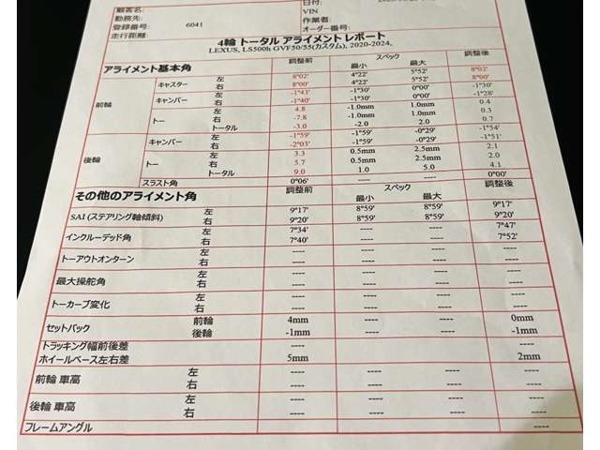 顧客名:
日付:
勤務先:
VIN
登録番号: 6041
作業者:
走行距離:
オーダー番号:
4輪 トータル アライメント レポート
LEXUS, LS500h GVF50/55(カスタム), 2020-2024,
アライメント基本角 調整前 スペック 最小 最大 調整後
前輪 キャスター 左 8°02' 4°22' 5°52' 8°02'
右 8°00' 4°22' 5°52' 8°00'
キャンバー 左 -1°43' -1°30' 0°00' -1°30'
右 -1°40' -1°30' 0°00' -1°28'
トー 左 4.8 -1.0mm 1.0mm 0.4
右 -7.8 -1.0mm 1.0mm 0.3
トータル -3.0 -2.0 2.0 0.7
後輪 キャンバー 左 -1°59' -1°59' -0°29' -1°54'
右 -2°03' -1°59' -0°29' -1°51'
トー 左 3.3 0.5mm 2.5mm 2.1
右 5.7 0.5mm 2.5mm 2.0
トータル 9.0 1.0 5.0 4.1
スラスト角 0°06' ---- ---- 0°00'
その他のアライメント角 調整前 スペック 最小 最大 調整後
SAI (ステアリング軸傾斜) 左 9°17' 8°59' 8°59' 9°17'
右 9°20' 8°59' 8°59' 9°20'
インクルーデッド角 左 7°34' ---- ---- 7°47'
右 7°40' ---- ---- 7°52'
トーアウトオンターン 左 ---- ---- ---- ----
右 ---- ---- ---- ----
最大操舵角 左 ---- ---- ---- ----
右 ---- ---- ---- ----
トーカーブ変化 左 ---- ---- ---- ----
右 ---- ---- ---- ----
セットバック 前輪 4mm ---- ---- 0mm
後輪 -1mm ---- ---- -1mm
トラッキング幅前後差 ---- ---- ---- ----
ホイールベース左右差 5mm ---- ---- 2mm
前輪 車高 左 ---- ---- ---- ----
右 ---- ---- ---- ----
後輪 車高 左 ---- ---- ---- ----
右 ---- ---- ---- ----
フレームアングル ---- ---- ---- ----